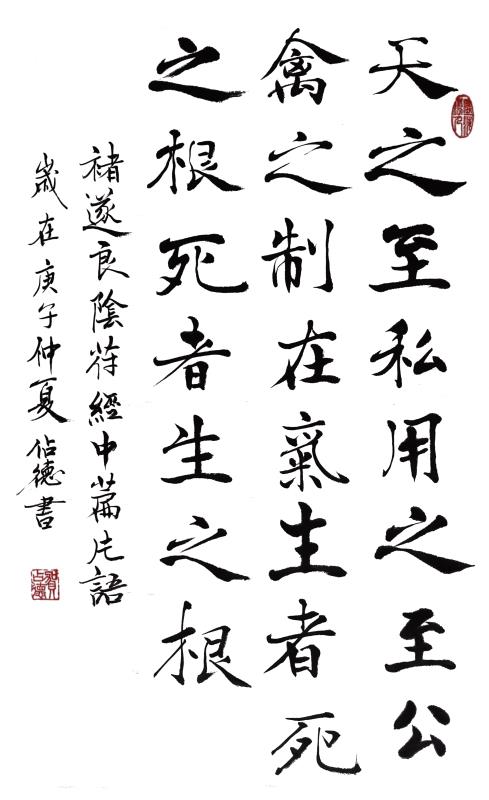 天之至私用之至公
禽之制在氣生者死
之根死者生之根
褚遂良陰符經中篇片語
歲在庚午仲夏佔德書